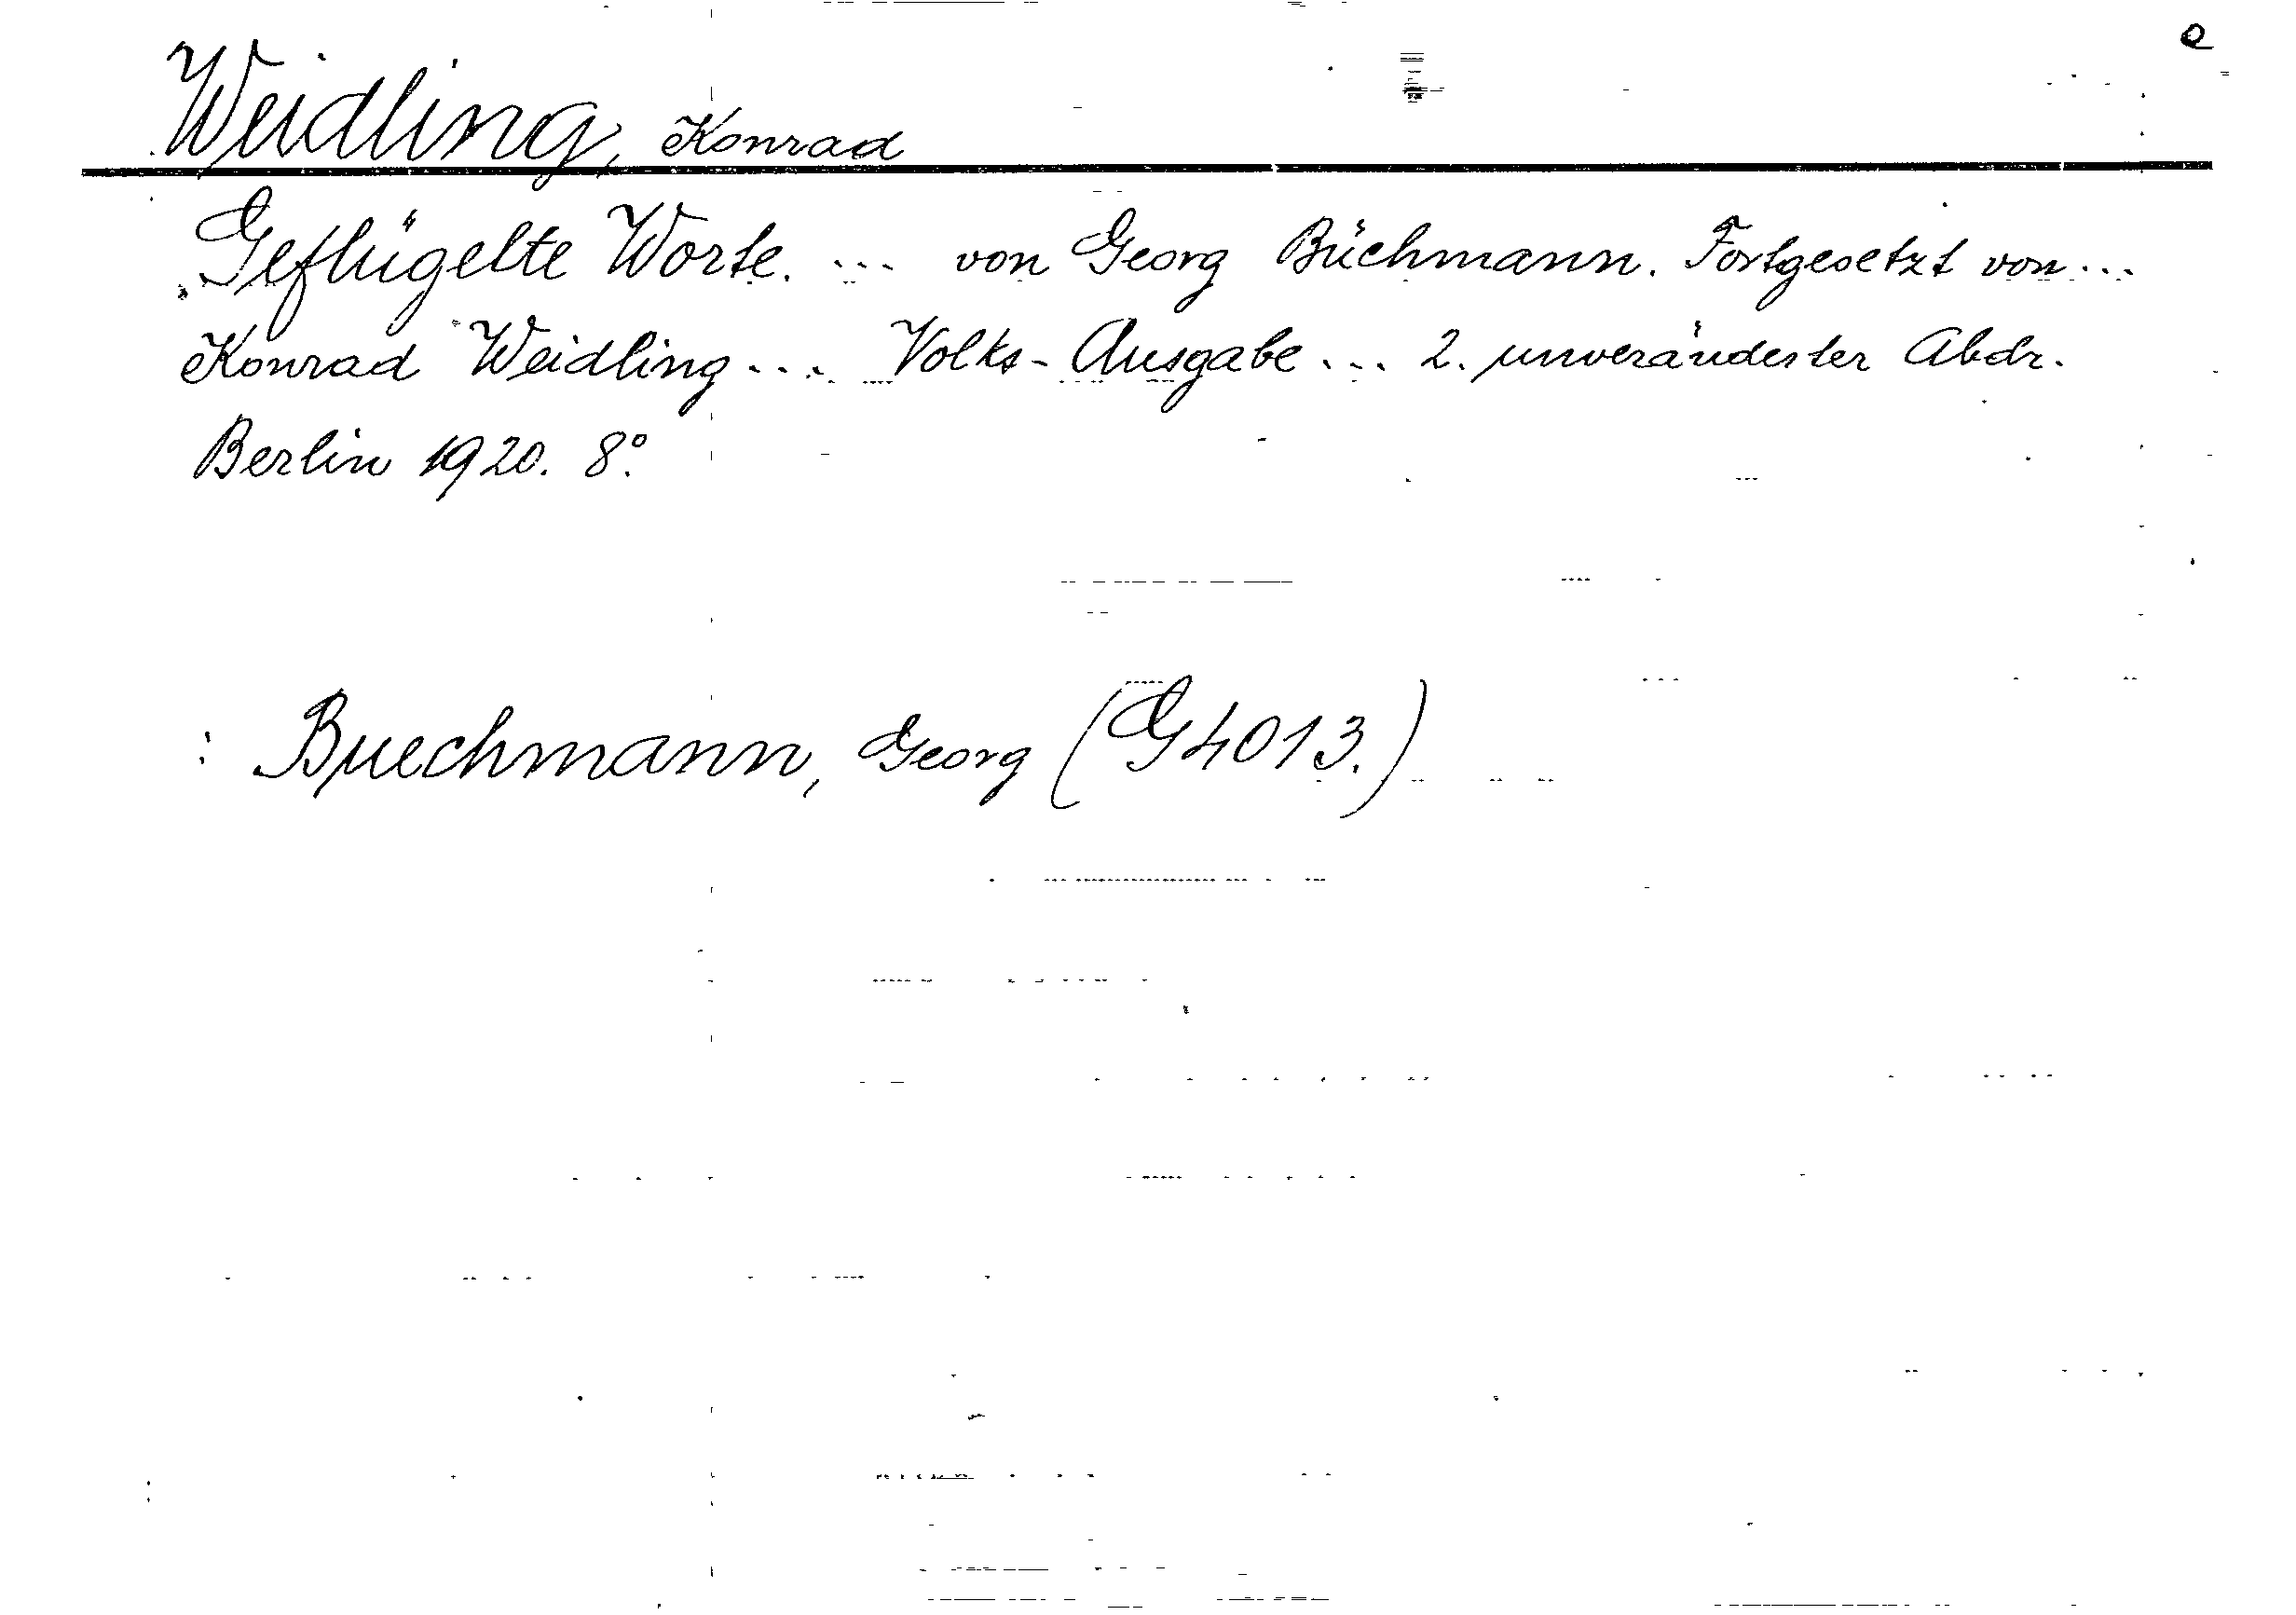 e
Weidling, Konrad
Geflügelte Worte. ... von Georg Büchmann. Fortgesetzt von ...
Konrad Weidling ... Volks-Ausgabe ... 2. unveränderter Abdr.
Berlin 1920. 8°.
: Buechmann, Georg (G4013.)